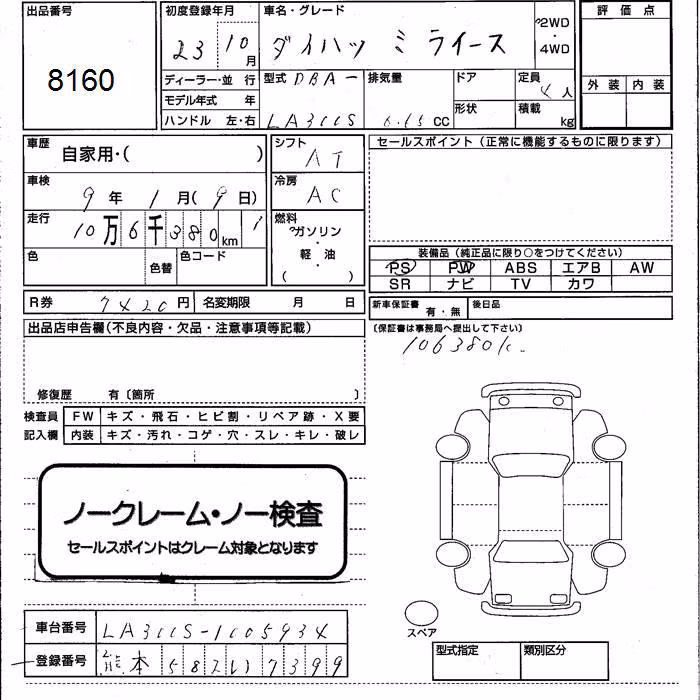 出品番号
8160
初度登録年月
23 10月
車名・グレード
ダイハツ ミライース
2WD
・
4WD
評価点
外装 内装
ディーラー・並行
モデル年式 年
ハンドル 左・右
型式 DBA-
LA300S
排気量
0.65 CC
ドア
形状
定員
4人
積載
kg
車歴
自家用・( )
車検
9年 1月(9日)
走行
10万6千380km
色
色替
色コード
シフト
AT
冷房
AC
燃料
ガソリン
・
軽・油
( )
セールスポイント(正常に機能するものに限ります)
装備品(純正品に限り○をつけてください)
PS PW ABS エアB AW
SR ナビ TV カワ
R券 7420円 名変期限 月 日
新車保証書 有・無 後日品
(保証書は事務局へ提出して下さい)
106380k
出品店申告欄(不良内容・欠品・注意事項等記載)
修復歴 有〔箇所 〕
検査員 FW キズ・飛石・ヒビ割・リペア跡・X要
記入欄 内装 キズ・汚れ・コゲ・穴・スレ・キレ・破レ
ノークレーム・ノー検査
セールスポイントはクレーム対象となります
車台番号 LA300S-1005934
登録番号 熊本 58 7399
スペア
型式指定 類別区分